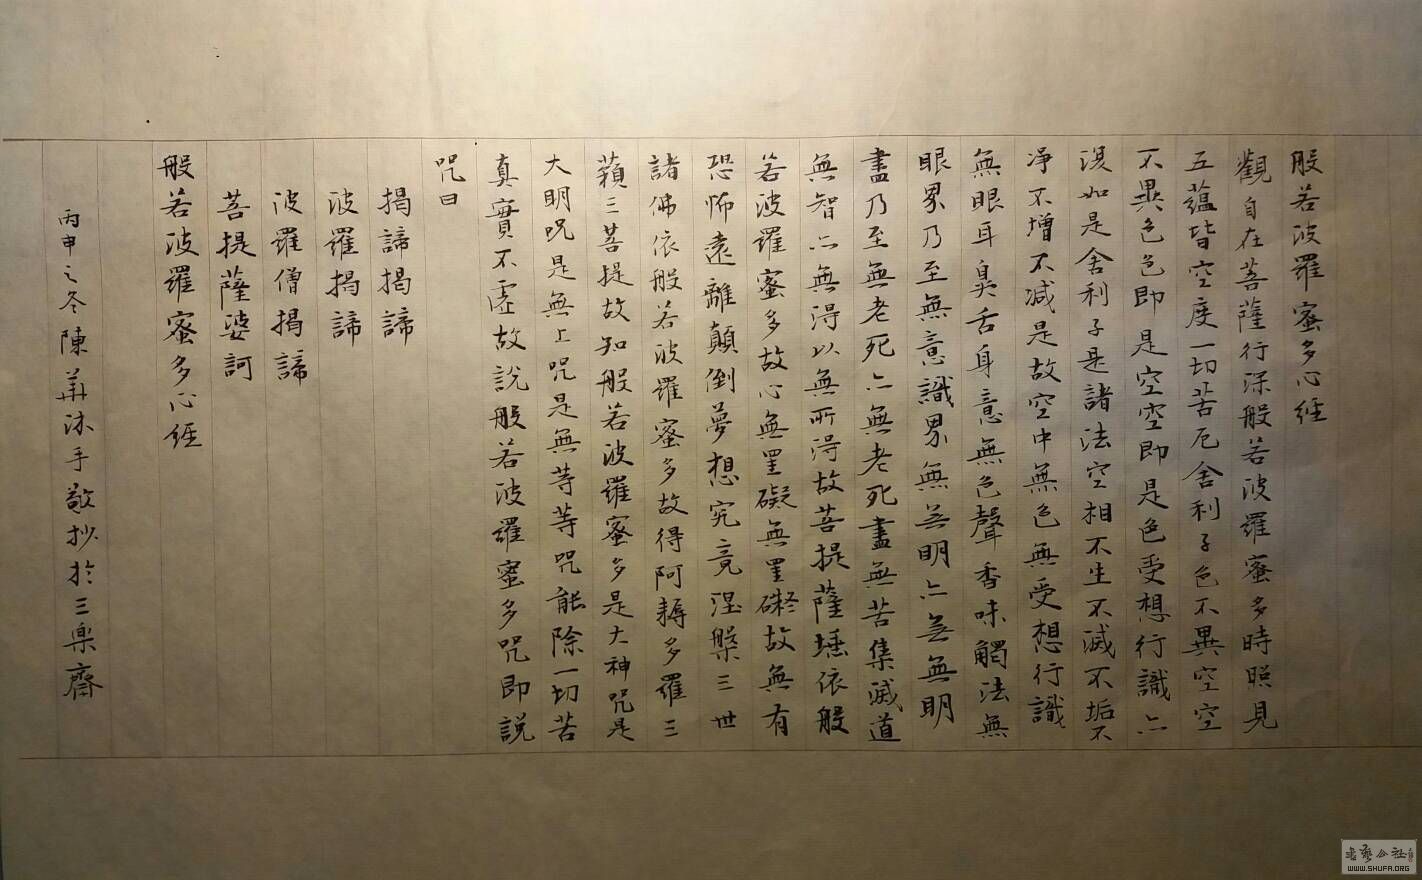 般若波羅蜜多心經
觀自在菩薩行深般若波羅蜜多時照見
五蘊皆空度一切苦厄舍利子色不異空空
不異色色即是空空即是色受想行識亦
復如是舍利子是諸法空相不生不滅不垢不
淨不增不減是故空中無色無受想行識
無眼耳鼻舌身意無色聲香味觸法無
眼界乃至無意識界無無明亦無無明
盡乃至無老死亦無老死盡無苦集滅道
無智亦無得以無所得故菩提薩埵依般
若波羅蜜多故心無罣礙無罣礙故無有
恐怖遠離顛倒夢想究竟涅槃三世
諸佛依般若波羅蜜多故得阿耨多羅三
藐三菩提故知般若波羅蜜多是大神咒是
大明咒是無上咒是無等等咒能除一切苦
真實不虛故說般若波羅蜜多咒即說
咒曰
揭諦揭諦
波羅揭諦
波羅僧揭諦
菩提薩婆訶
般若波羅蜜多心經
丙申之冬陳華沐手敬抄於三樂齋
书艺公社
WWW.SHUFA.ORG